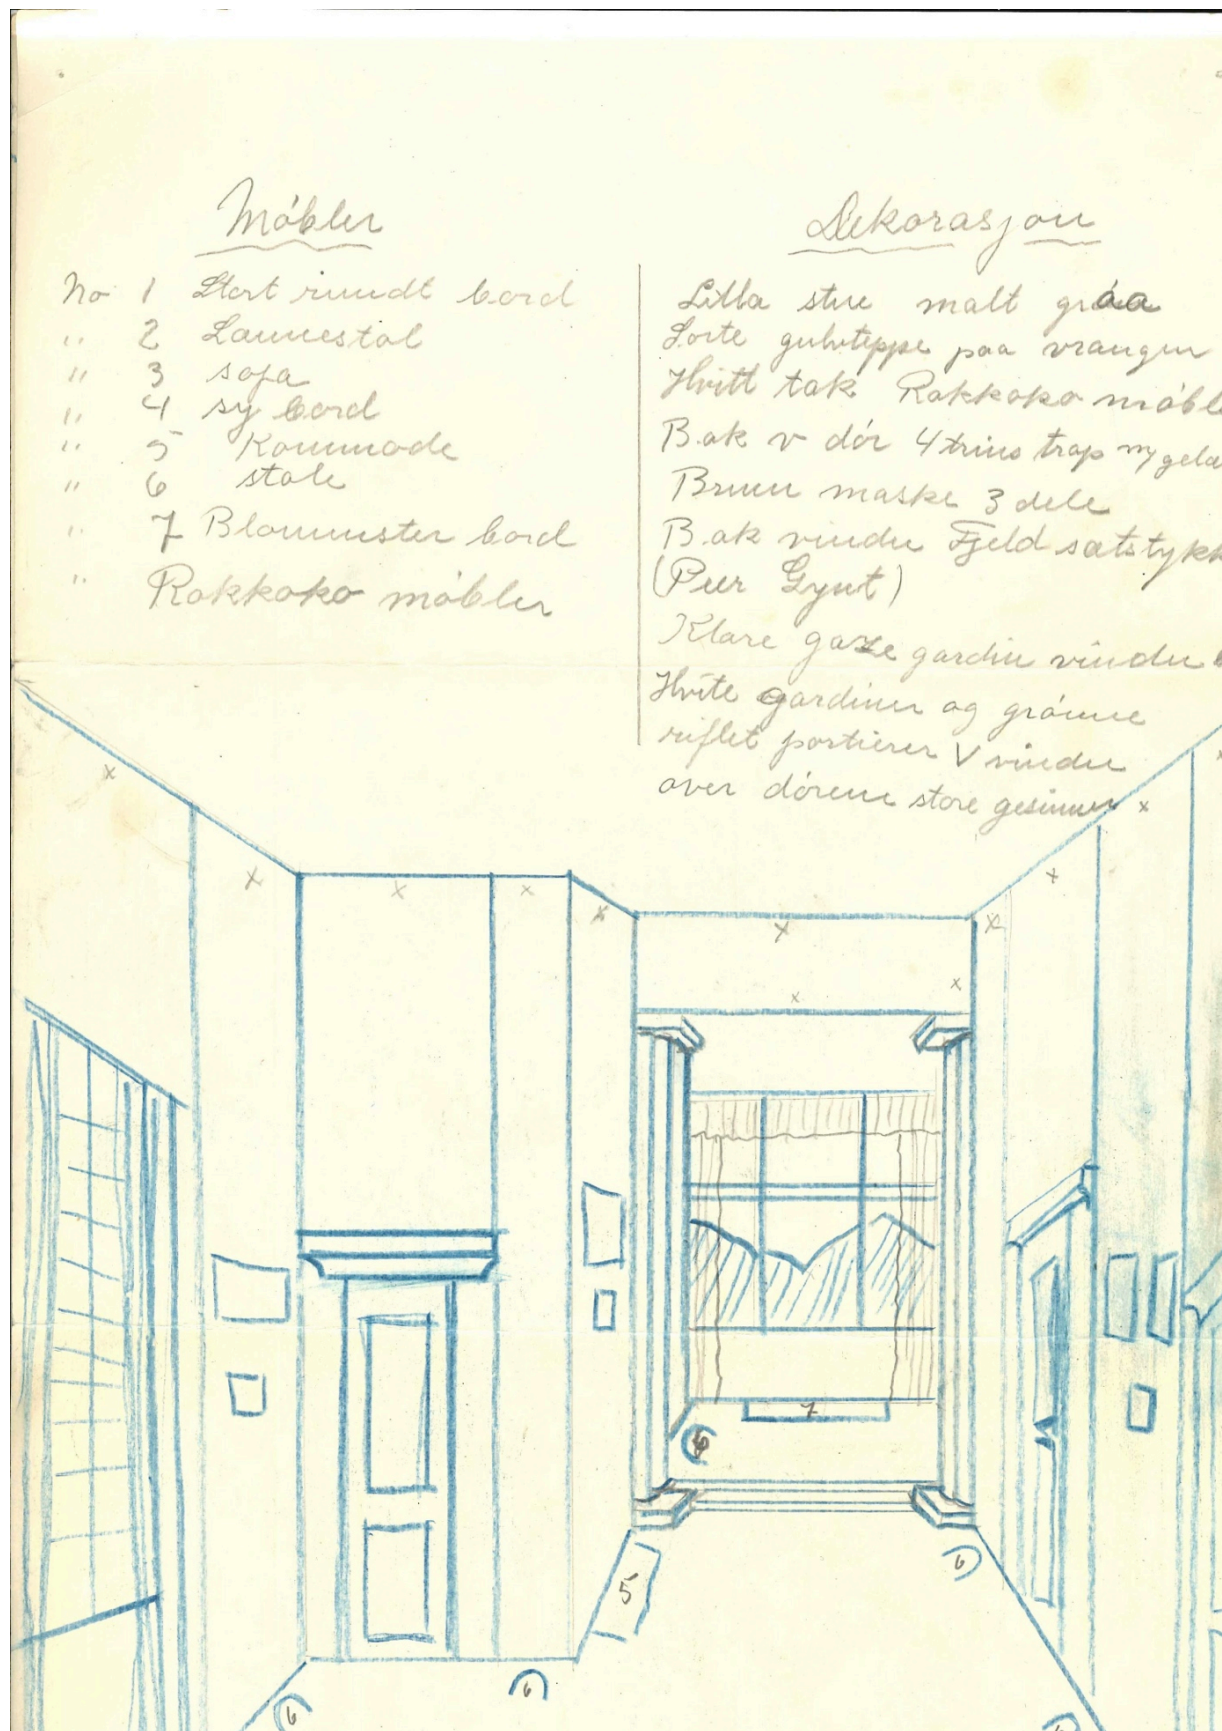 Møbler
No 1 Stort rundt bord
" 2 Lænestol
" 3 sofa
" 4 sy bord
" 5 Kommode
" 6 stole
" 7 Blommster bord
" Rokkoko møbler
Dekorasjon
Lilla stue malt graa
Sorte gulvteppe paa vrangen
Hvitt tak Rokkoko møbl
Bak v dör 4 trins trap m/gelæ
Brun maske 3 dele
Bak vindu Fjeld satstykk
(Peer Gynt)
Klare gaze gardin vindu
Hvite gardiner og grønne
riflet portierer V vindu
over dørene store gesimser
7
6
5
6
6
6
6